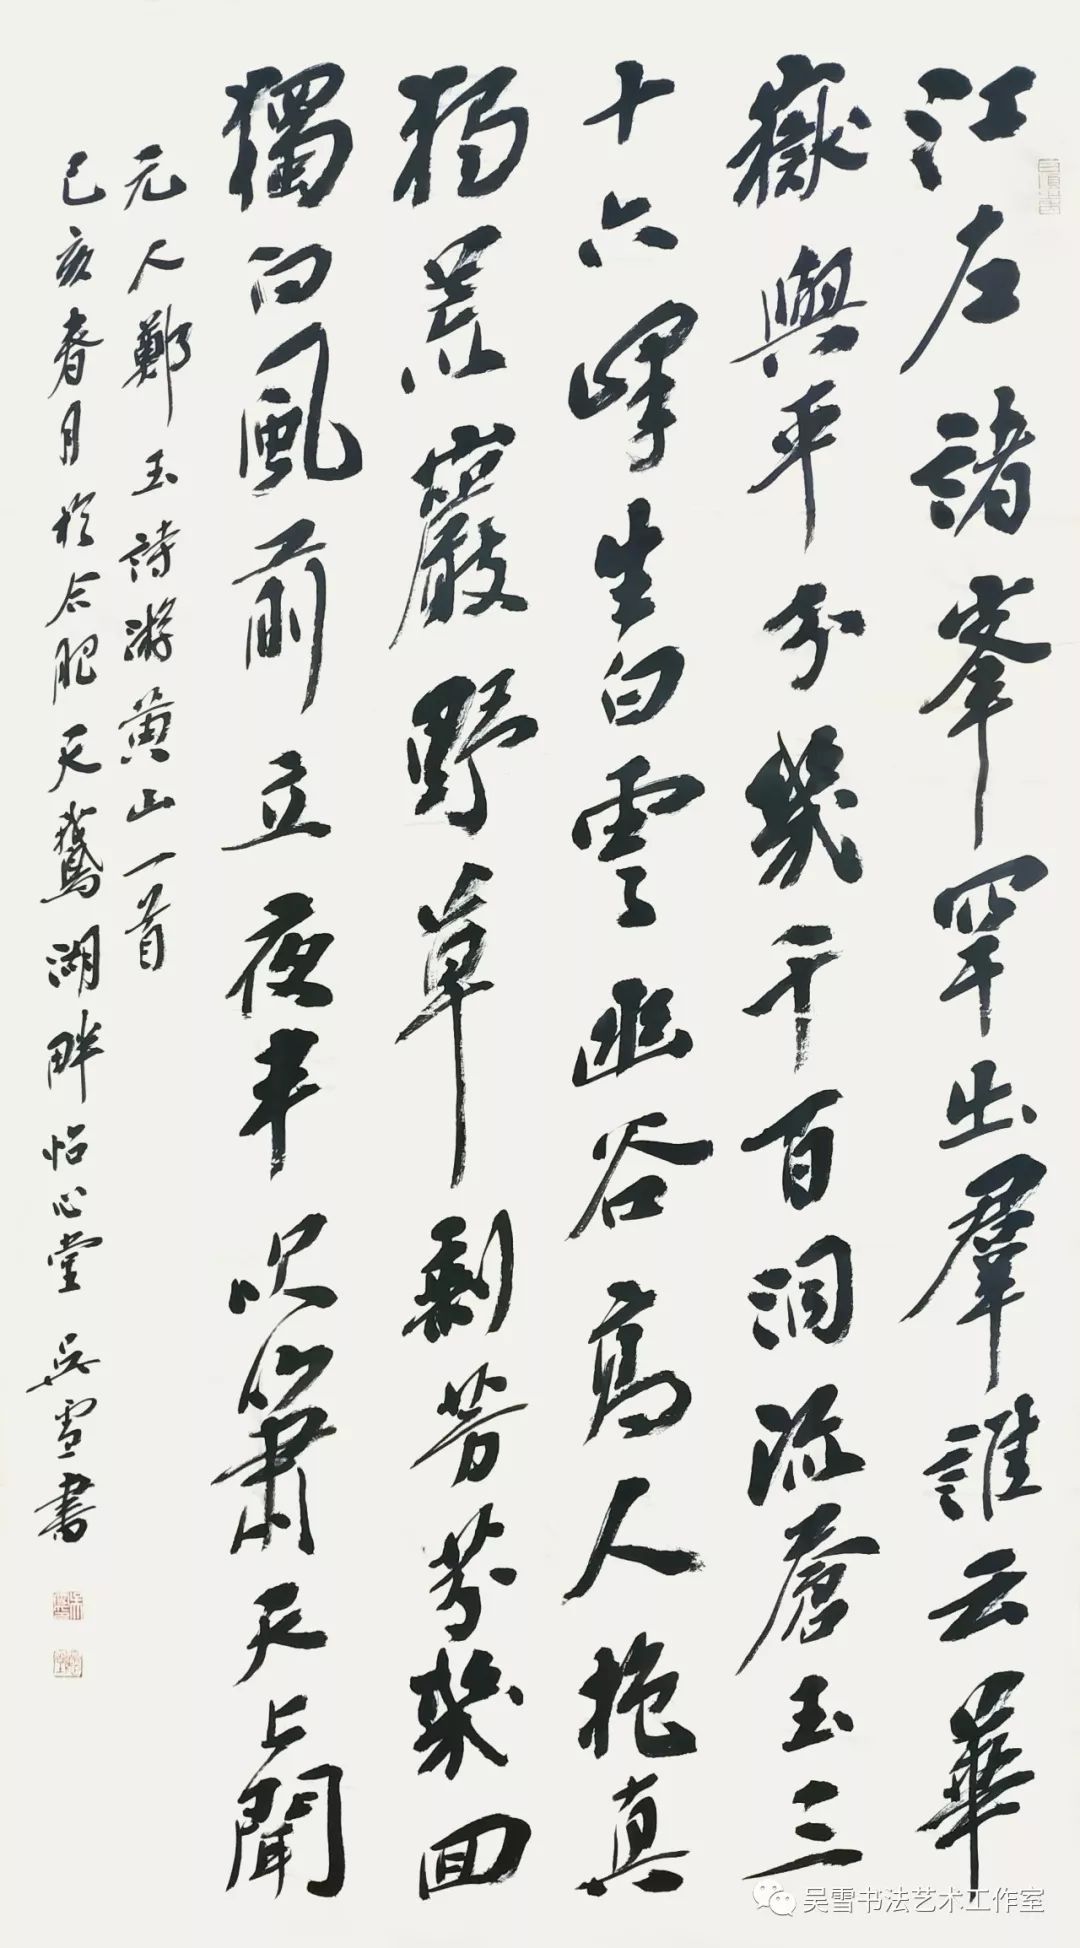 江左諸峯罕出羣誰云華
嶽與平分幾千百洞流蒼玉三
十六峰生白雲幽谷高人抱真
独荒巖野草剩芳芬幾回
獨向風前立夜半吹簫天上聞
元人鄭玉詩游黄山一首
己亥春月於合肥天鵞湖畔怡心堂 吴雪書
吴雪书法艺术工作室